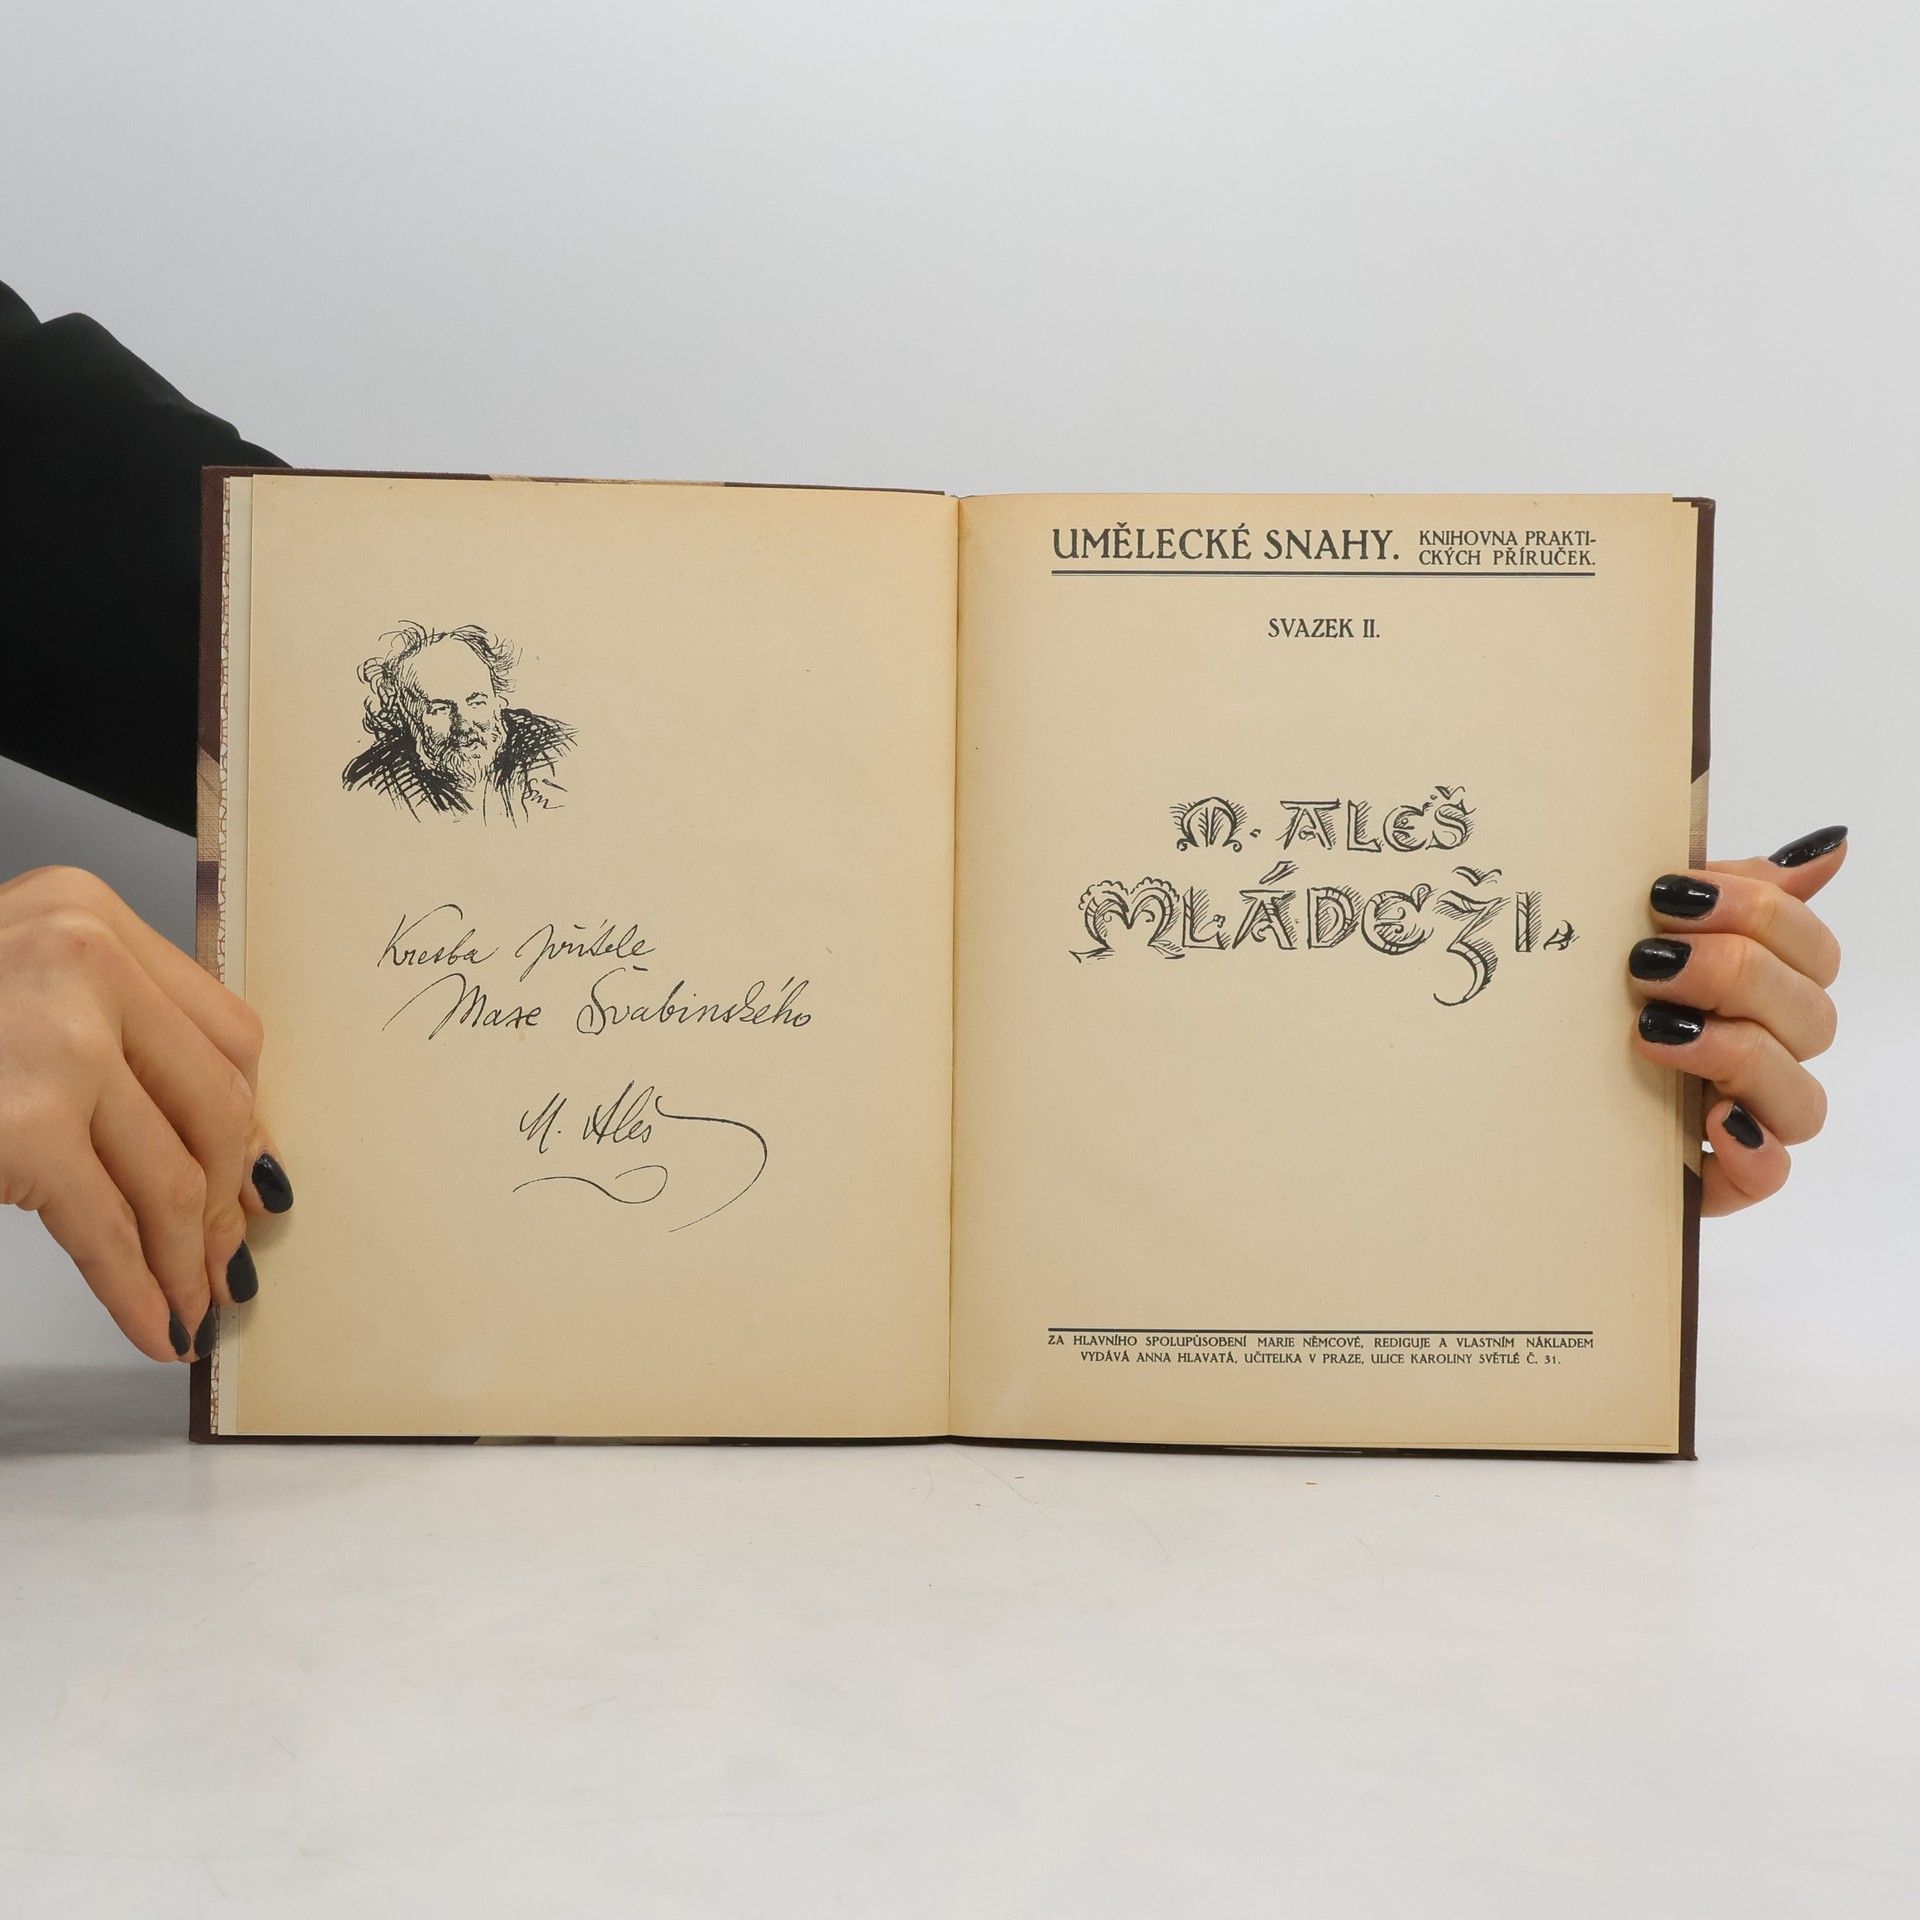 Kresba přítele
Maxe Švabinského
M. Aleš
UMĚLECKÉ SNAHY. KNIHOVNA PRAKTI-
CKÝCH PŘÍRUČEK.
SVAZEK II.
M. ALEŠ
MLÁDEŽI.
ZA HLAVNÍHO SPOLUPŮSOBENÍ MARIE NĚMCOVÉ, REDIGUJE A VLASTNÍM NÁKLADEM
VYDÁVÁ ANNA HLAVATÁ, UČITELKA V PRAZE, ULICE KAROLINY SVĚTLÉ Č. 31.